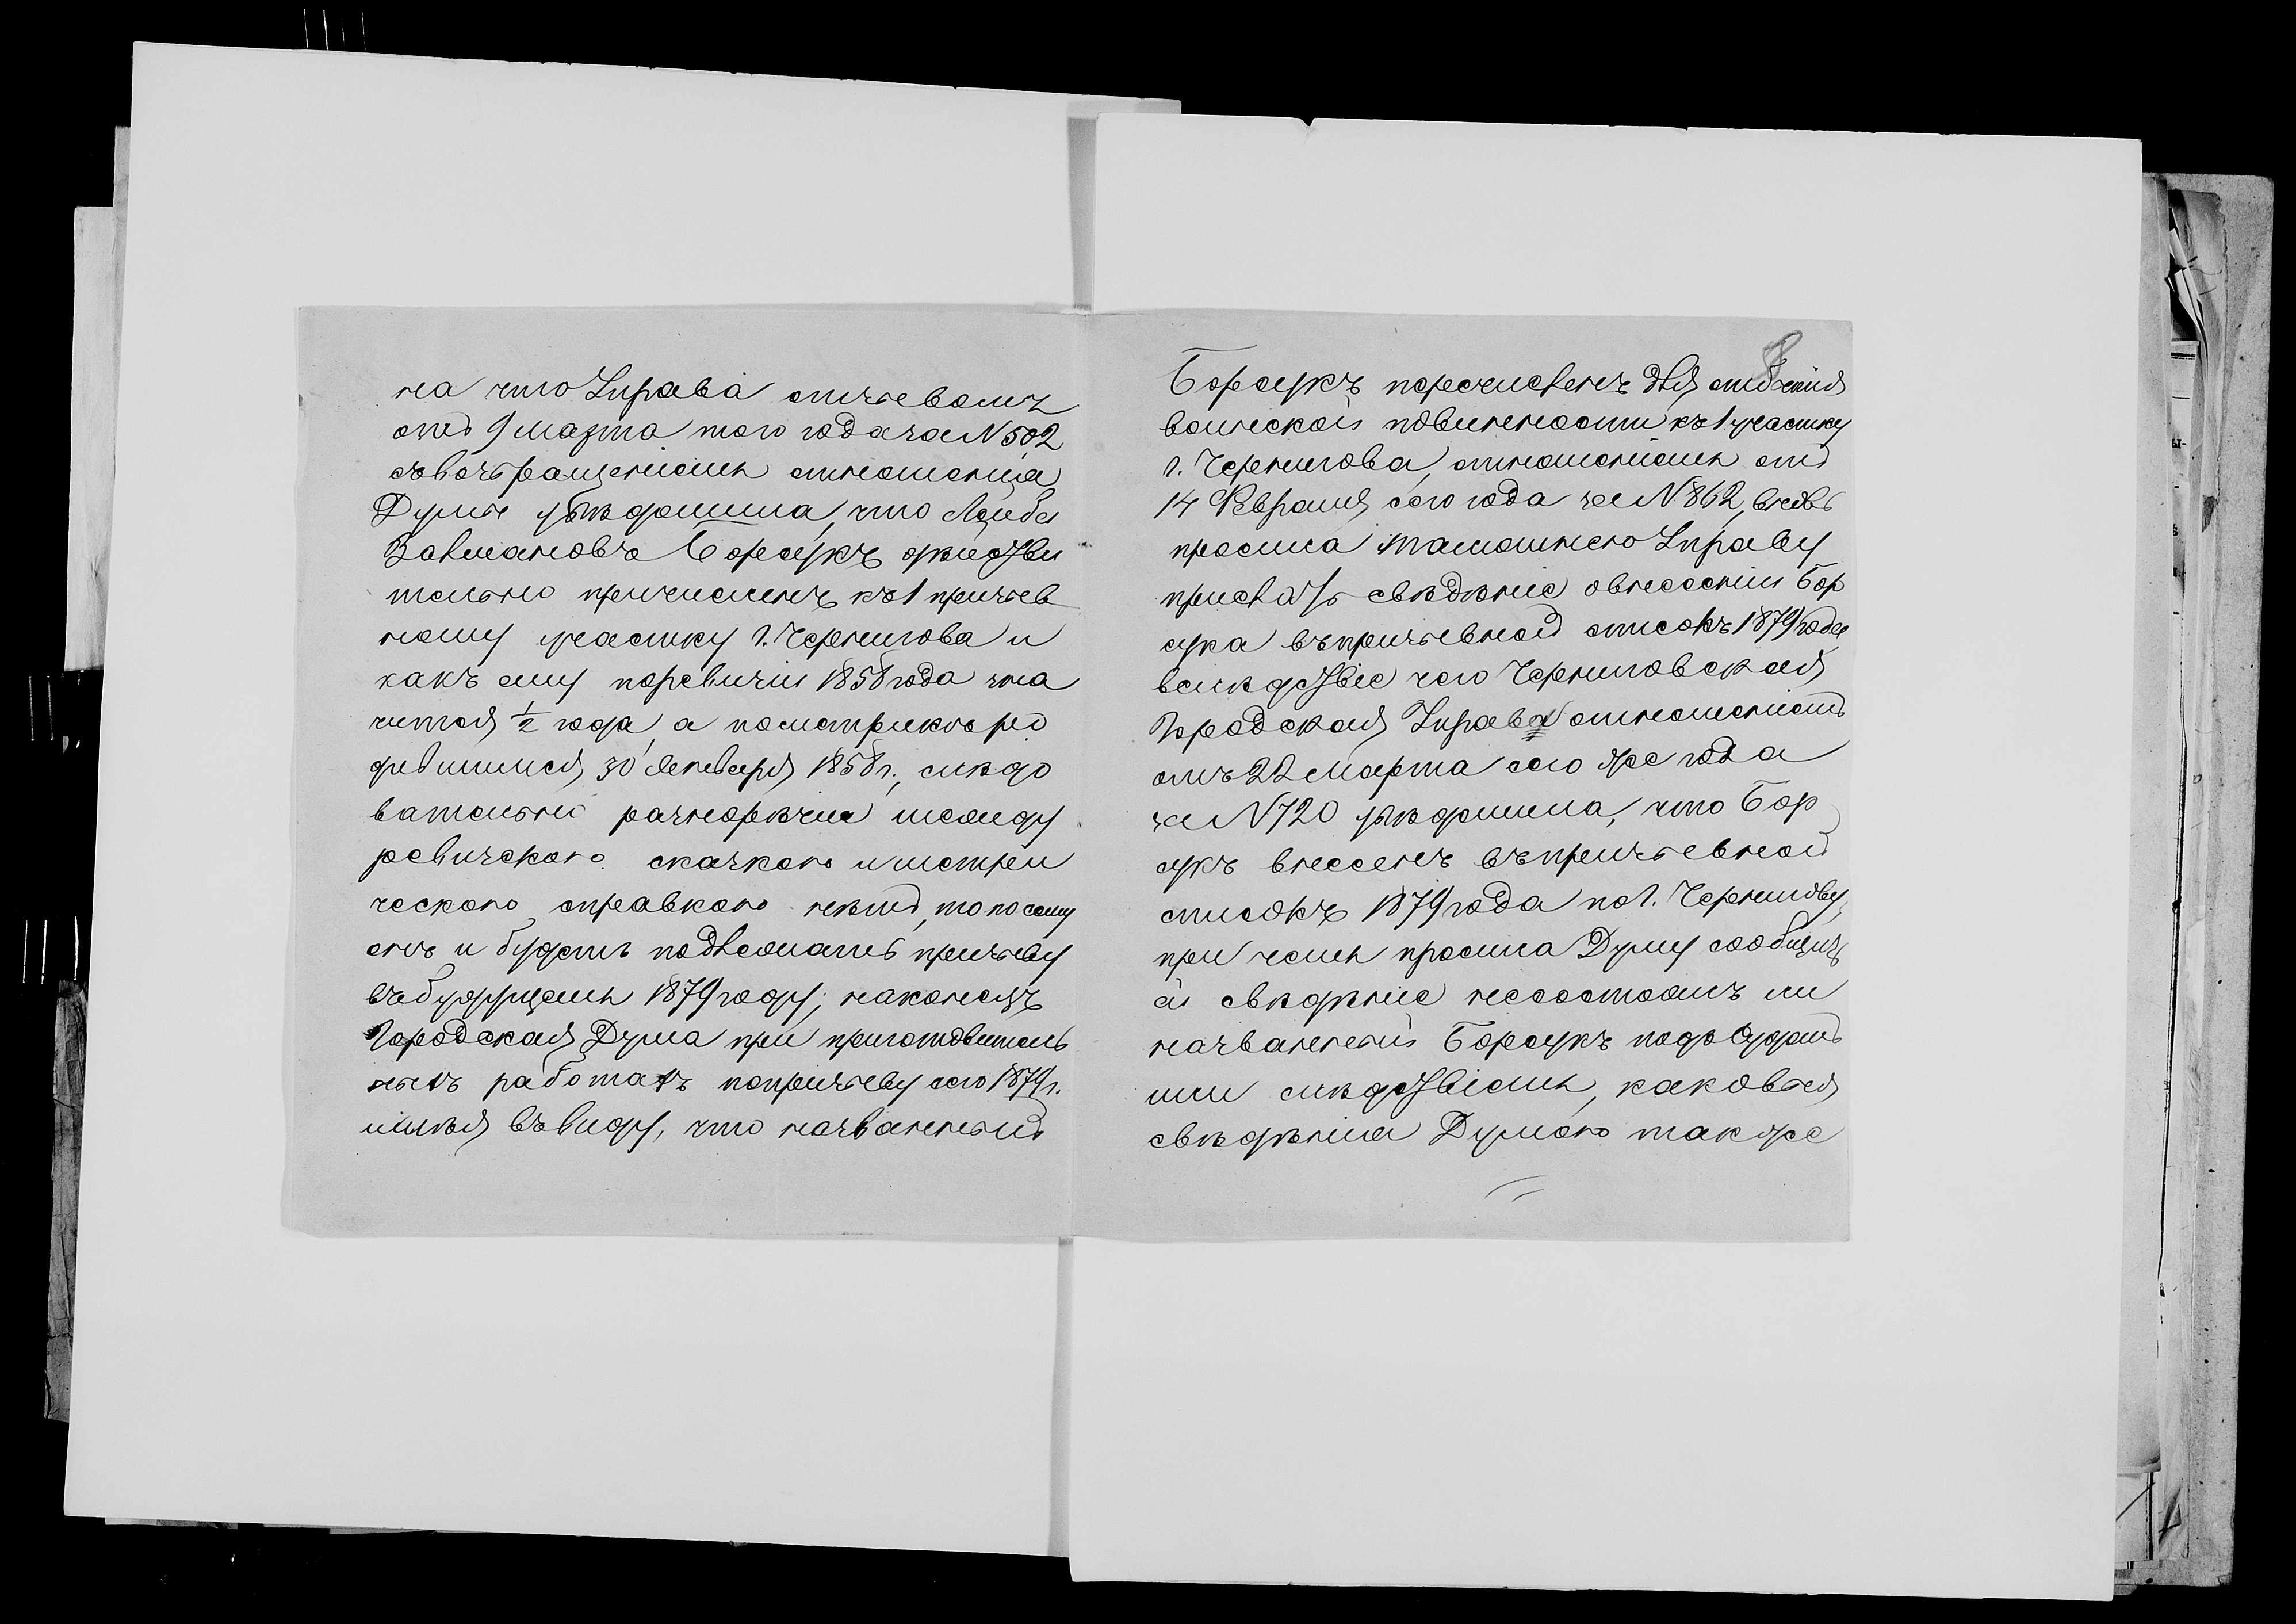 на что Управа отзывомъ
отъ 9 Марта того года за N 502
съ возвращеніемъ отношенія
Думы увѣдомила, что Лейба
Залмановъ Борсукъ дѣйстви
тельно причисленъ къ 1 призыв
ному участку г. Чернигова и
какъ ему по ревизіи 1858 года зна
чится ½ года, а по метрикѣ ро
дившимся 30 Января 1858 г., слѣдо
вательно разнорѣчія между
ревизскою сказкою и метри
ческою справкою нѣтъ, то по сему
онъ и будетъ подлежать призыву
въ будущемъ 1879 году; наконецъ
Городская Дума при приготовитель
ныхъ работахъ по призыву сего 1879 г.
имѣя въ виду, что названный
8
Борсукъ перечисленъ для отбытія
воинской повинности къ 1 участку
г. Чернигова, отношеніемъ отъ
14 Февраля сего года за N 862, вновь
просила тамошнюю Управу
прислать свѣдѣніе о внесеніи Бор
сука въ призывной списокъ 1879 года
вслѣдствіе чего Черниговская
Городская Управа отношеніемъ
отъ 22 Марта сего же года
за N 720 увѣдомила, что Бор
сукъ внесенъ въ призывной
списокъ 1879 года по г. Чернигову,
при чемъ просила Думу сообщить
ей свѣдѣніе не состоитъ ли
названный Борсукъ подъ судомъ
или слѣдствіемъ, каковыя
свѣдѣнія Думою также